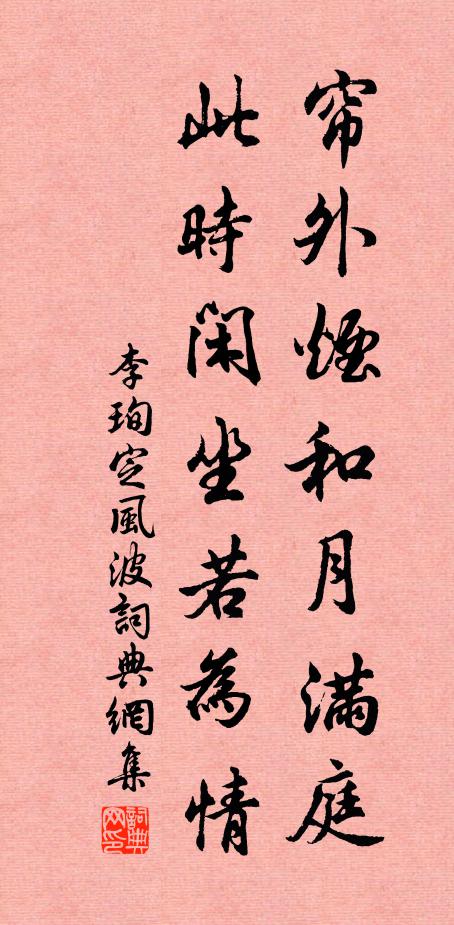 帘外煙和月滿庭
此時閑坐若為情
李珣定風波詞典網集
詞典網印